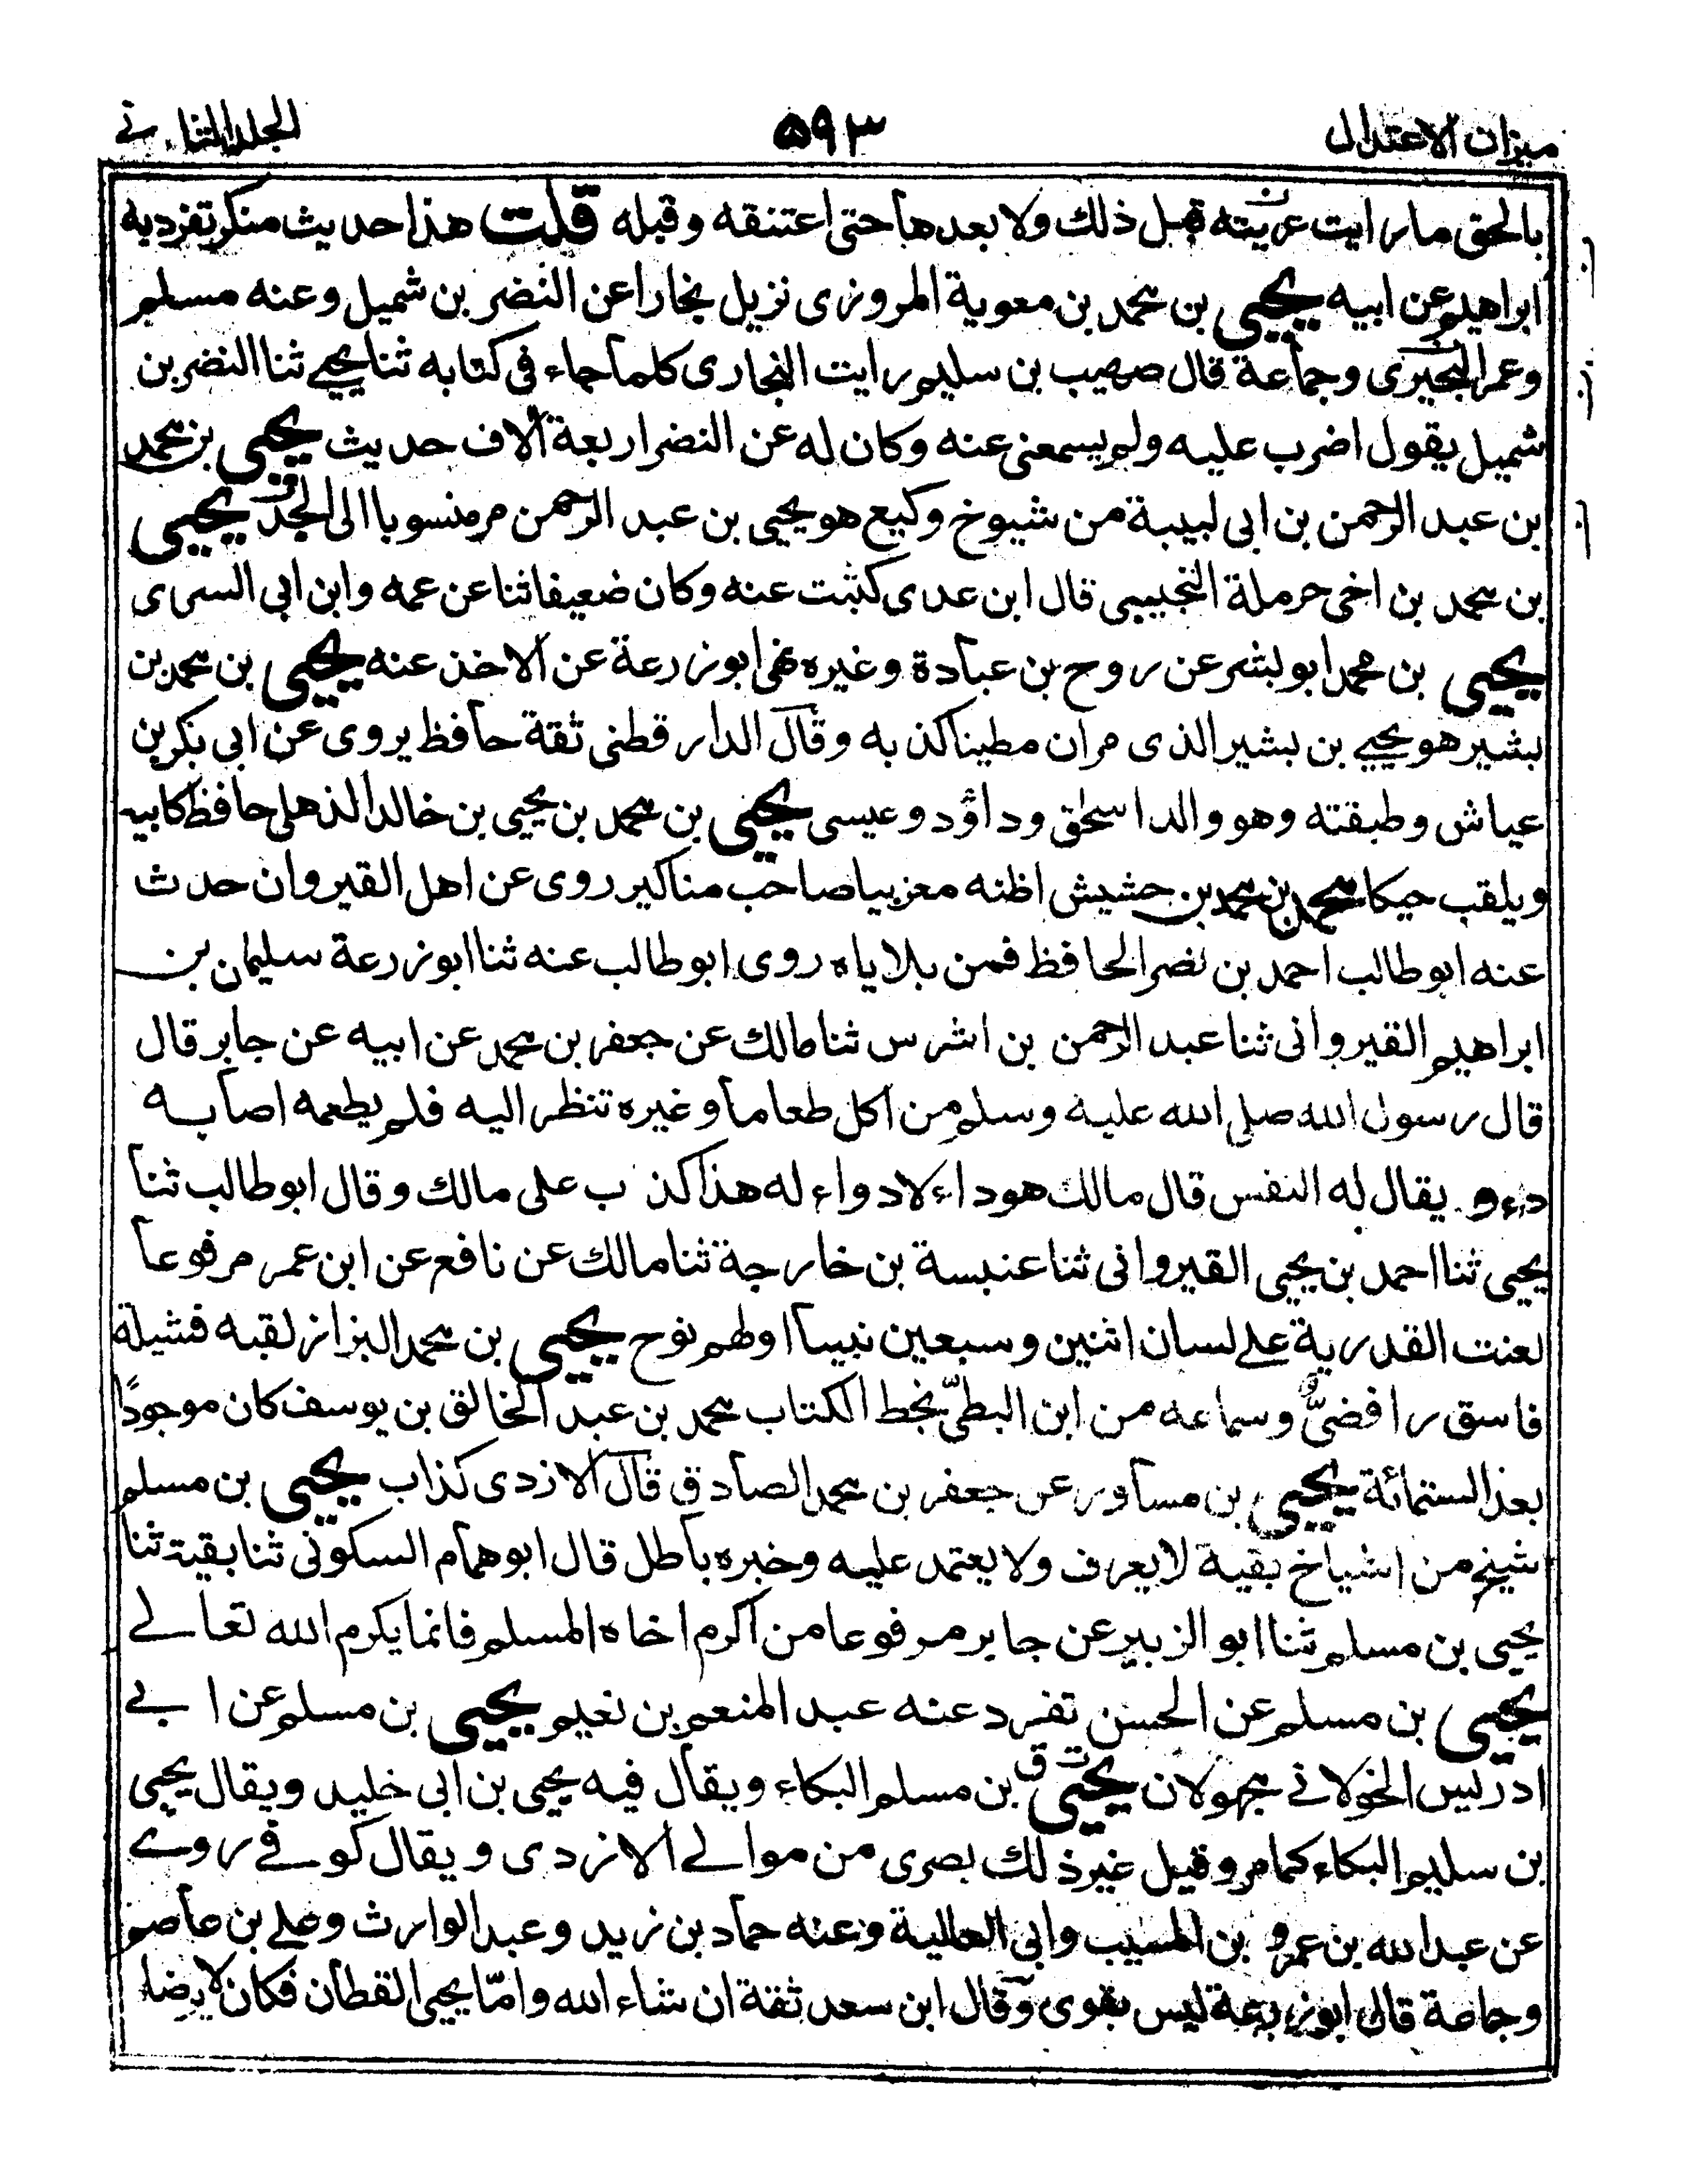 ميزان الاعتدال
٥٩٣
الجلد الثاني
بالحق ما رايت عريته قبل ذلك ولا بعدها حتى اعتنقه وقبله قلت هذا حديث منكر تفرد به
ابراهيم عن ابيه يحيى بن محمد بن معوية المروزى نزيل بخارا عن النضر بن شميل وعنه مسلم
وعمر البجيرى وجماعة قال صهيب بن سليم رايت البخارى كلما جاء فى كتابه ثنا يحيے ثنا النضر بن
شميل يقول اضرب عليه ولم يسمعنى عنه وكان له عن النضر اربعة آلاف حديث يحيى بن محمد
بن عبد الرحمن بن ابى لبيبة من شيوخ وكيع هو يحيى بن عبد الرحمن مر منسوبا الى الجد يحيى
بن محمد بن اخى حرملة التجيبى قال ابن عدى كتبت عنه وكان ضعيفا ثنا عن عمه وابن ابي السرى
يحيى بن محمد ابو بشر عن روح بن عبادة وغيره نهى ابو زرعة عن الاخذ عنه يحيى بن محمد بن
بشير هو يحيے بن بشير الذى مر ان مطينا كذبه وقال الدار قطنى ثقة حافظ يروى عن ابى بكر بن
عياش وطبقته وهو والد اسحٰق وداؤد وعيسى يحيى بن محمد بن يحيى بن خالد الذهلى حافظ كابيه
ويلقب حيكا محمد بن محمد بن حشيش اظنه مغربيا صاحب مناكير روى عن اهل القيروان حدث
عنه ابو طالب احمد بن نصر الحافظ فمن بلاياه روى ابو طالب عنه ثنا ابو زرعة سليمان بن
ابراهيم القيروانى ثنا عبد الرحمن بن اشرس ثنا مالك عن جعفر بن محمد عن ابيه عن جابر قال
قال رسول الله صلى الله عليه وسلم من اكل طعاما وغيره تنظر اليه فلم يطعمه اصابه
داء و يقال له النفس قال مالك هو داء لا دواء له هذا كذب على مالك وقال ابو طالب ثنا
يحيى ثنا احمد بن يحيى القيروانى ثنا عنبسة بن خارجة ثنا مالك عن نافع عن ابن عمر مرفوعا
لعنت القدرية علے لسان اثنين وسبعين نبيا اولهم نوح يحيى بن محمد البزاز لقبه فشيلة
فاسق رافضىٌّ وسماعه من ابن البطىّ بخط الكتاب محمد بن عبد الخالق بن يوسف كان موجودًا
بعد الستمائة يحيى بن مساور عن جعفر بن محمد الصادق قال الازدى كذاب يحيى بن مسلم
شيخ من اشياخ بقية لا يعرف ولا يعتمد عليه وخبره باطل قال ابو همام السكونى ثنا بقية ثنا
يحيى بن مسلم ثنا ابو الزبير عن جابر مرفوعا من اكرم اخاه المسلم فانما يكرم الله تعالے
يحيى بن مسلم عن الحسن تفرد عنه عبد المنعم بن نعيم يحيى بن مسلم عن ابے
ادريس الخولانے مجهولان يحيى ت ق بن مسلم البكاء ويقال فيه يحيى بن ابى خليد ويقال يحيى
بن سليم البكاء كما مر وقيل غير ذلك بصرى من موالے الازدى ويقال كوفے روے
عن عبد الله بن عمر و بن المسيب وابى العالية وعنه حماد بن زيد وعبد الوارث وعلے بن عاصم
وجماعة قال ابو زرعة ليس بقوى وقال ابن سعد ثقة ان شاء الله وامّا يحيى القطان فكان لا يرضاه